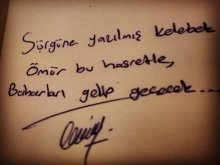 Sürgüne yazılmış kelebek
Ömür bu hasretle,
Baharları gelip geçecek....